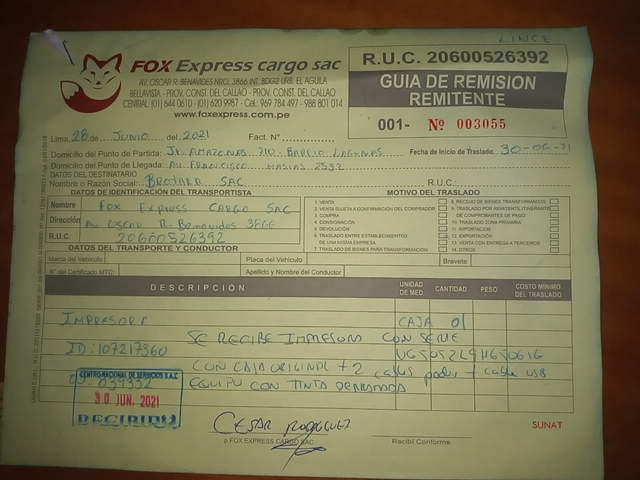 LINCE
FOX Express cargo sac
AV. OSCAR R. BENAVIDES NRO. 3866 INT. BDG12 URB. EL AGUILA
BELLAVISTA - PROV. CONST. DEL CALLAO - PROV. CONST. DEL CALLAO
CENTRAL: (01) 644 0610 - (01) 620 9987 - Cel.: 969 784 497 - 988 801 014
www.foxexpress.com.pe
R.U.C. 20600526392
GUIA DE REMISION
REMITENTE
001- Nº 003055
Lima, 28 de JUNIO del 2021 Fact. N°
Domicilio del Punto de Partida: Jr. AMAZONAS 210 - BARRIO LAGUNAS Fecha de Inicio de Traslado: 30-06-21
Domicilio del Punto de Llegada: AV. FRANCISCO MASIAS 2592
DATOS DEL DESTINATARIO
Nombre o Razón Social: SAC R.U.C.
DATOS DE IDENTIFICACIÓN DEL TRANSPORTISTA
Nombre FOX EXPRESS CARGO SAC
Dirección AV OSCAR R. Benavides 3866
R.U.C. 20600526392
MOTIVO DEL TRASLADO
1. VENTA
2. VENTA SUJETA A CONFIRMACIÓN DEL COMPRADOR
3. COMPRA
4. CONSIGNACIÓN
5. DEVOLUCIÓN
6. TRASLADO ENTRE ESTABLECIMIENTOS
DE UNA MISMA EMPRESA
7. TRASLADO DE BIENES PARA TRANSFORMACIÓN
8. RECOJO DE BIENES TRANSFORMADOS
9. TRASLADO POR REMITENTE ITINERANTE
DE COMPROBANTES DE PAGO
10. TRASLADO ZONA PRIMARIA
11. IMPORTACIÓN
12. EXPORTACIÓN
13. VENTA CON ENTREGA A TERCEROS
14. OTROS
DATOS DEL TRANSPORTE Y CONDUCTOR
Marca del Vehículo Placa del Vehículo Brevete
N° del Certificado MTC: Apellido y Nombre del Conductor
DESCRIPCIÓN UNIDAD DE MED. CANTIDAD PESO COSTO MÍNIMO DEL TRASLADO
IMPRESORA CAJA 01
SE RECIBE IMPRESORA CON SERIE
ID: 107217360
CON CAJA ORIGINAL + 2 cables poder + cable USB
EQUIPO CON TINTA DERRAMADA
CENTRO NACIONAL DE SERVICIOS S.A.C
09- 039332
30 JUN. 2021
RECIBIDO
CESAR RODRIGUEZ
p. FOX EXPRESS CARGO SAC
Recibí Conforme
SUNAT